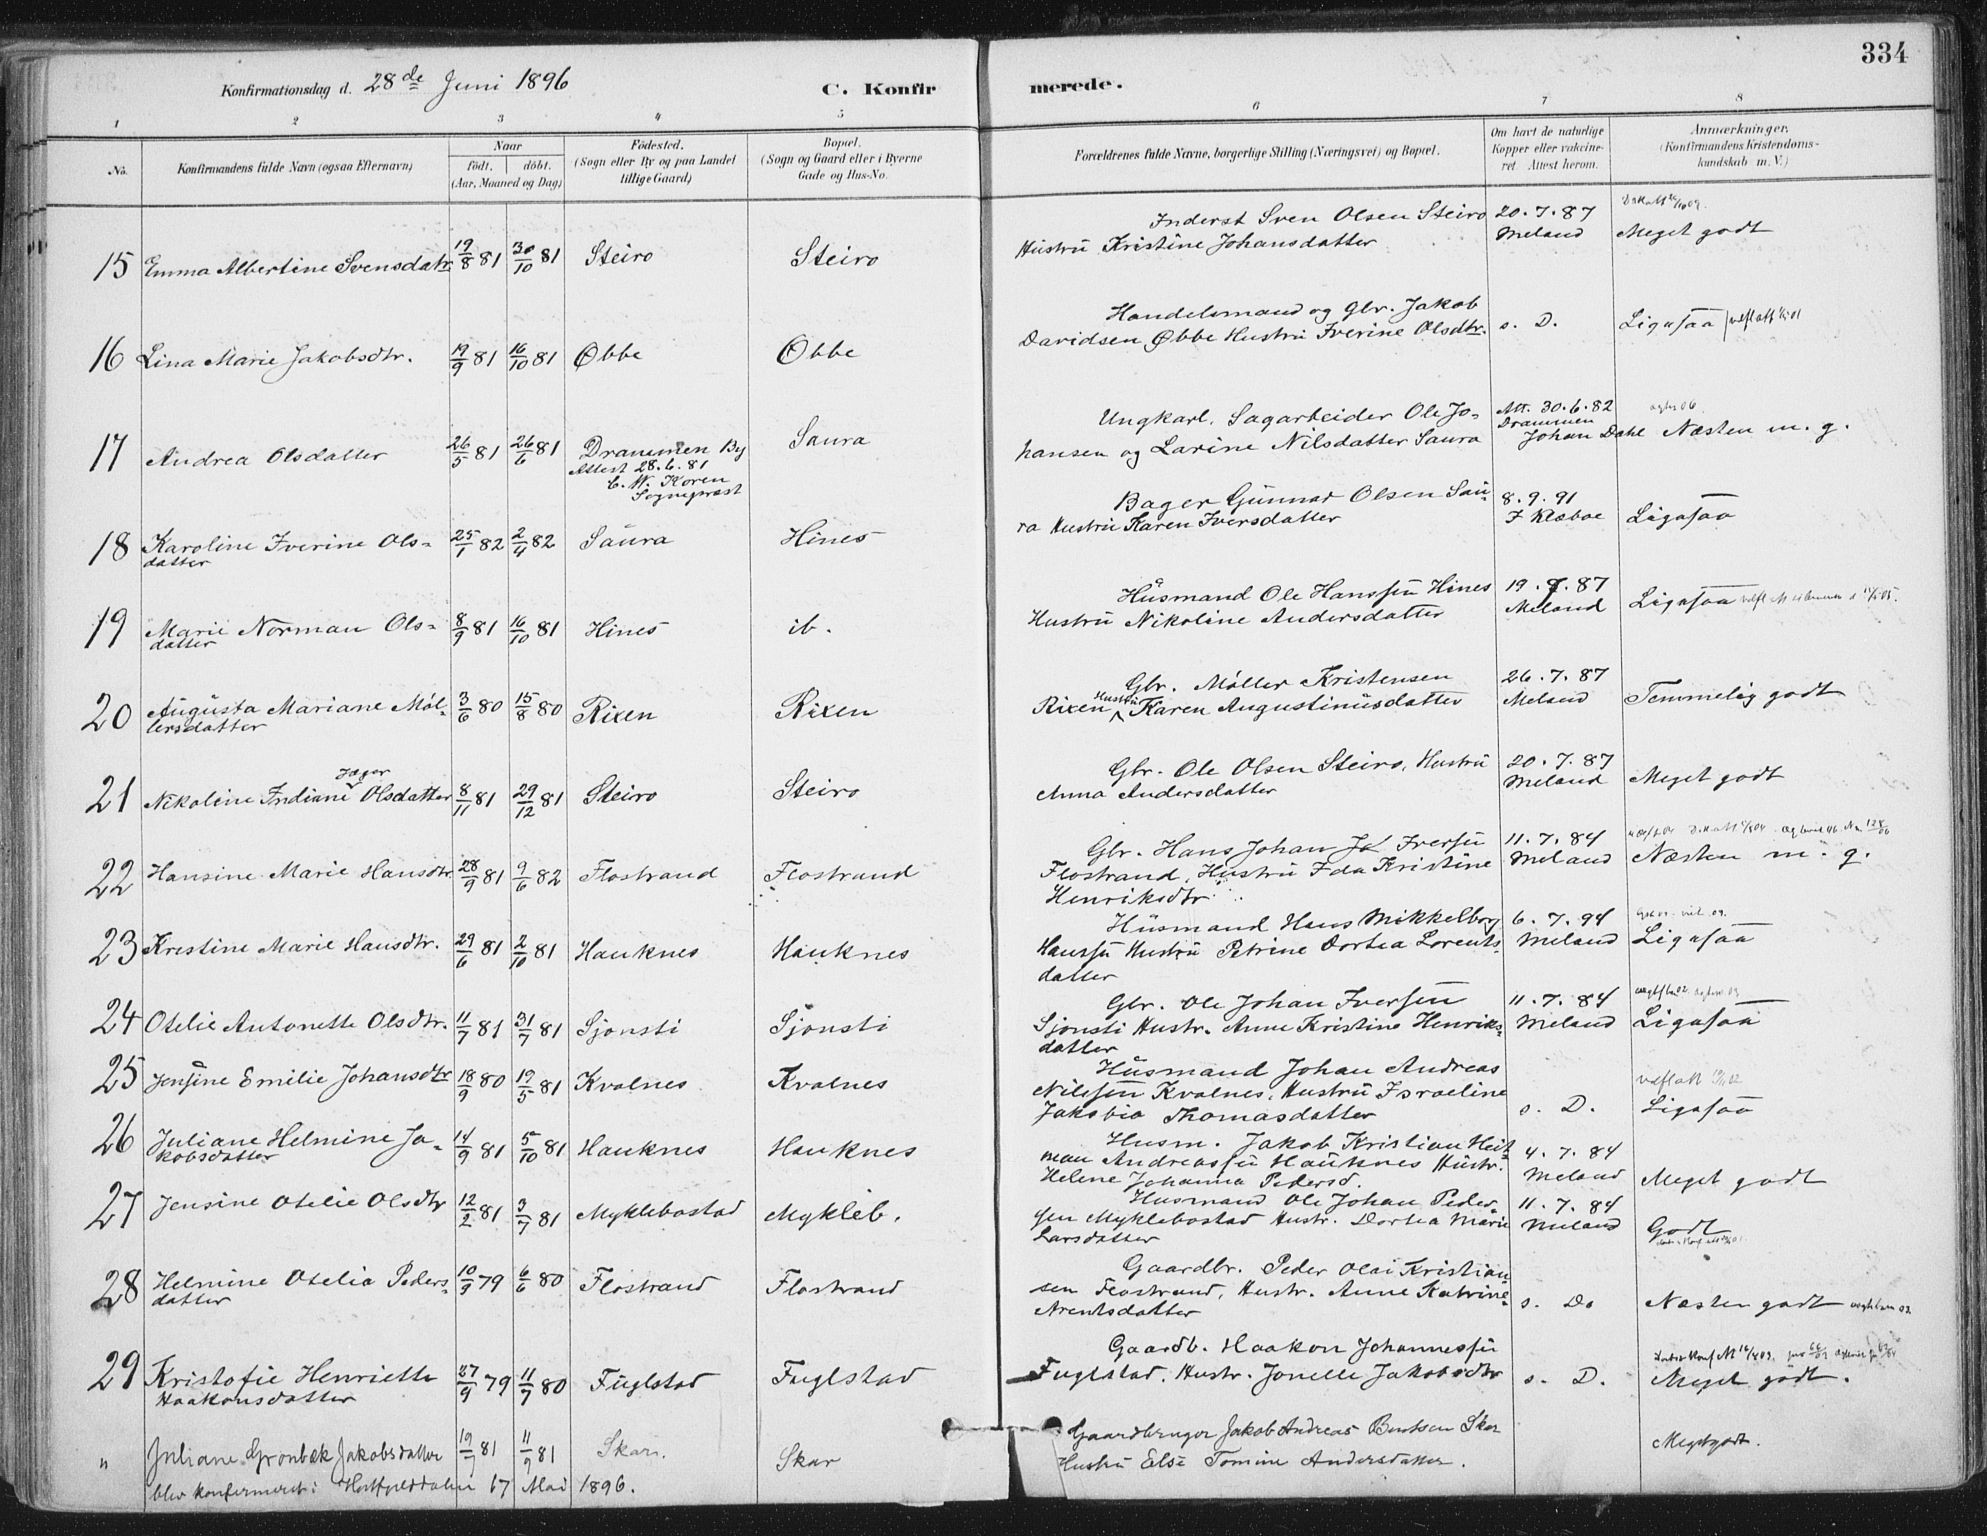 334
Konfirmationsdag d. 28de Juni 1896
C. Konfirmerede.
1 2 3 4 5 6 7 8
No.
Konfirmandens fulde Navn (ogsaa Efternavn)
Naar
födt. döbt.
(Aar, Maaned og Dag)
Födested.
(Sogn eller By og paa Landet
tillige Gaard)
Bopæl.
(Sogn og Gaard eller i Byerne
Gade og Hus-No.
Forældrenes fulde Navne, borgerlige Stilling (Næringsvei) og Bopæl.
Om havt de naturlige
Kopper eller vakcine-
ret. Attest herom.
Anmærkninger.
(Konfirmandens Kristendoms-
kundskab m. V.)
15 Emma Albertine Svensdatr 19/8 81 30/10 81 Steiro Steiro
Inderst Sven Olsen Steiro 20.7.87
Hustru Kristine Johansdatter Meland Meget godt
16 Lina Marie Jakobsdtr. 19/9 81 16/10 81 Øbbe Øbbe
Handelsmand og Gbr. Jakob
Davidsen Øbbe Hustru Iverine Olsdtr. s. D. Ligesaa
17 Andrea Olsdatter 26/5 81 26/6 81 Drammen By Saura
Attest 28.6.81
C. W. Koren
Sognepræst
Ungkarl. Sagarbeider Ole Jo- Att. 30.6.82
Drammen
hansen og Larine Nilsdatter Saura Johan Dahl Næsten m. g.
18 Karoline Iverine Ols- 25/1 82 2/4 82 Saura Hines
datter
Bager Gunnar Olsen Sau- 8.9.91
ra Hustru Karen Iversdatter J Klæboe Ligesaa
19 Marie Norman Ols- 8/9 81 16/10 81 Hines ib.
datter
Husmand Ole Hanssen Hines 19.8.87
Hustru Nikoline Andersdatter Meland Ligesaa
20 Augusta Mariane Møl- 3/6 80 15/8 80 Rixen Rixen
lersdatter
Gbr. Møller Kristensen 26.7.87
Rixen Hustru Karen Augustinusdatter Meland Temmelig godt
21 Nikoline Indiane Jæger Olsdatter 8/11 81 29/12 81 Steiro Steiro
Gbr. Ole Olsen Steiro, Hustru 20.7.87
Anna Andersdatter Meland Meget godt
22 Hansine Marie Hansdtr 28/9 81 9/6 82 Flostrand Flostrand
Gbr. Hans Johan Iversen 11.7.84
Flostrand, Hustru Ida Kristine Meland Næsten m. g.
Henriksdtr
23 Kristine Marie Hansdtr. 29/6 81 2/10 81 Hauknes Hauknes
Husmand Hans Mikkelborg 6.7.94
Hanssen Hustru Petrine Dortea Lorents- Meland Ligesaa
datter
24 Otelie Antonette Olsdtr. 11/7 81 31/7 81 Sjonsti Sjonsti
Gbr. Ole Johan Iversen 11.7.84
Sjonsti Hustr. Anne Kristine Henriks- Meland Ligesaa
datter
25 Jensine Emilie Johansdtr 18/9 80 19/5 81 Kvalnes Kvalnes
Husmand Johan Andreas
Nilssen Kvalnes, Hustru Israeline
Jakobia Thomasdatter s. D. Ligesaa
26 Juliane Helmine Ja- 14/9 81 5/10 81 Hauknes Hauknes
kobsdatter
Husm. Jakob Kristian Heit-
man Andreassen Hauknes Hustr. 4.7.84
Helene Johanna Pedersd. Meland Meget godt
27 Jensine Otelie Olsdtr 12/2 81 3/7 81 Myklebostad Mykleb.
Husmand Ole Johan Peder- 11.7.84
sen Myklebostad Hustr. Dortea Marie Meland Godt
Larsdatter
28 Helmine Otelia Peders- 10/9 79 6/6 80 Flostrand Flostrand
datter
Gaardbr. Peder Olai Kristian-
sen Flostrand, Hustr. Anne Katrine
Arentsdatter s. D. Næsten godt
29 Kristofie Henriette 27/9 79 11/7 80 Fuglstad Fuglstad
Haakonsdatter
Gaardb. Haakon Johannessen
Fuglstad, Hustr. Jonelle Jakobsdtr s. D. Meget godt.
" Juliane Grønbæk Jakobsdatter 19/7 81 11/9 81 Skar. Skar
blev konfirmeret i Hatfjelddalen 17 Mai 1896.
Gaardbruger Jakob Andreas Bentsen Skar
Hustru Else Tomine Andersdatter. Meget godt.